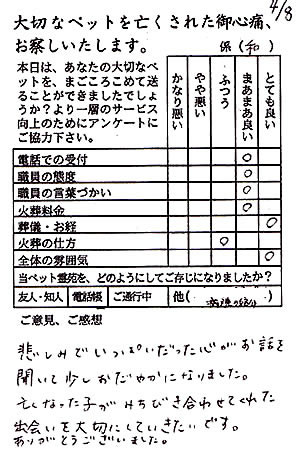 4/8
大切なペットを亡くされた御心痛、
お察しいたします。
係(和)
本日は、あなたの大切なペ
ットを、まごころこめて送
ることができましたでしょ
うか?より一層のサービス
向上のためにアンケートに
ご協力下さい。
かなり悪い
やや悪い
ふつう
まあまあ良い
とても良い
電話での受付 ○
職員の態度 ○
職員の言葉づかい ○
火葬料金 ○
葬儀・お経 ○
火葬の仕方 ○
全体の雰囲気 ○
当ペット霊苑を、どのようにしてご存じになりましたか?
友人・知人 電話帳 ご通行中 他(
ご意見、ご感想
悲しみでいっぱいだった心がお話を
聞いて少しおだやかになりました。
亡くなった子がみちびき合わせてくれた
出会いを大切にしていきたいです。
ありがとうございました。